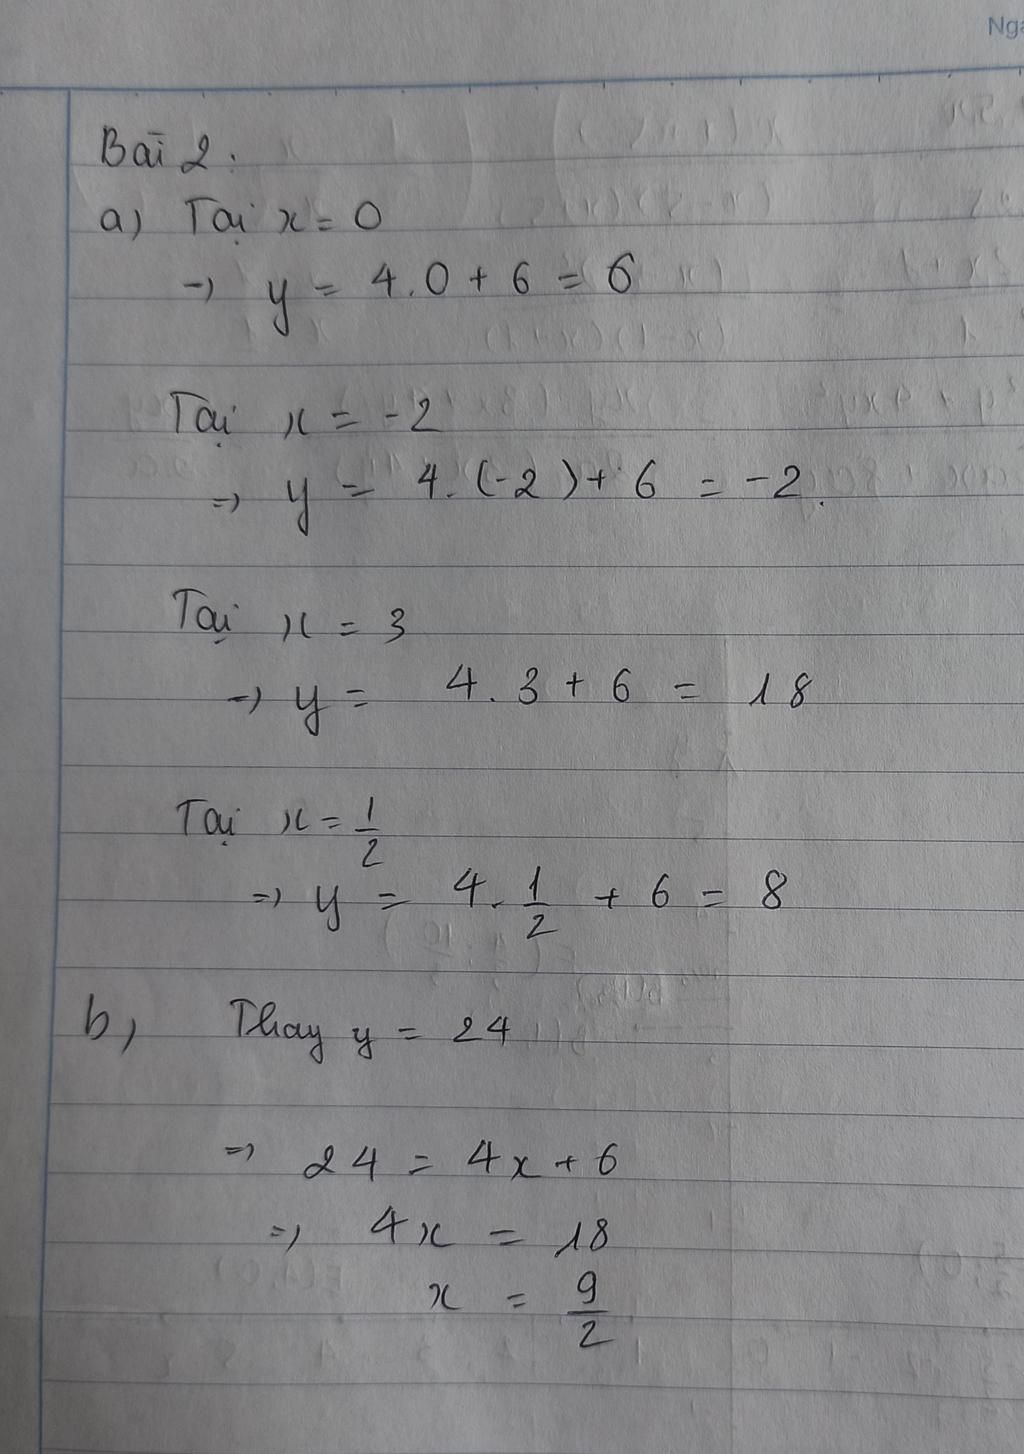 Ngà
Bài 2:
a) Tại x = 0
=> y = 4.0 + 6 = 6
Tại x = -2
=> y = 4.(-2) + 6 = -2.
Tại x = 3
=> y = 4.3 + 6 = 18
Tại x = 1/2
=> y = 4.1/2 + 6 = 8
b, Thay y = 24
=> 24 = 4x + 6
=> 4x = 18
x = 9/2